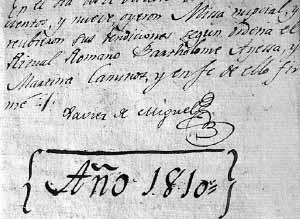 cientos, y nueve oyeron Misa nupcial, y
recibieron sus bendiciones segun ordena el
Ritual Romano Bartholome Ayessa, y
Martina Caminos, y en fe de ello fir
me =
Xavier de Miguel
Año 1810